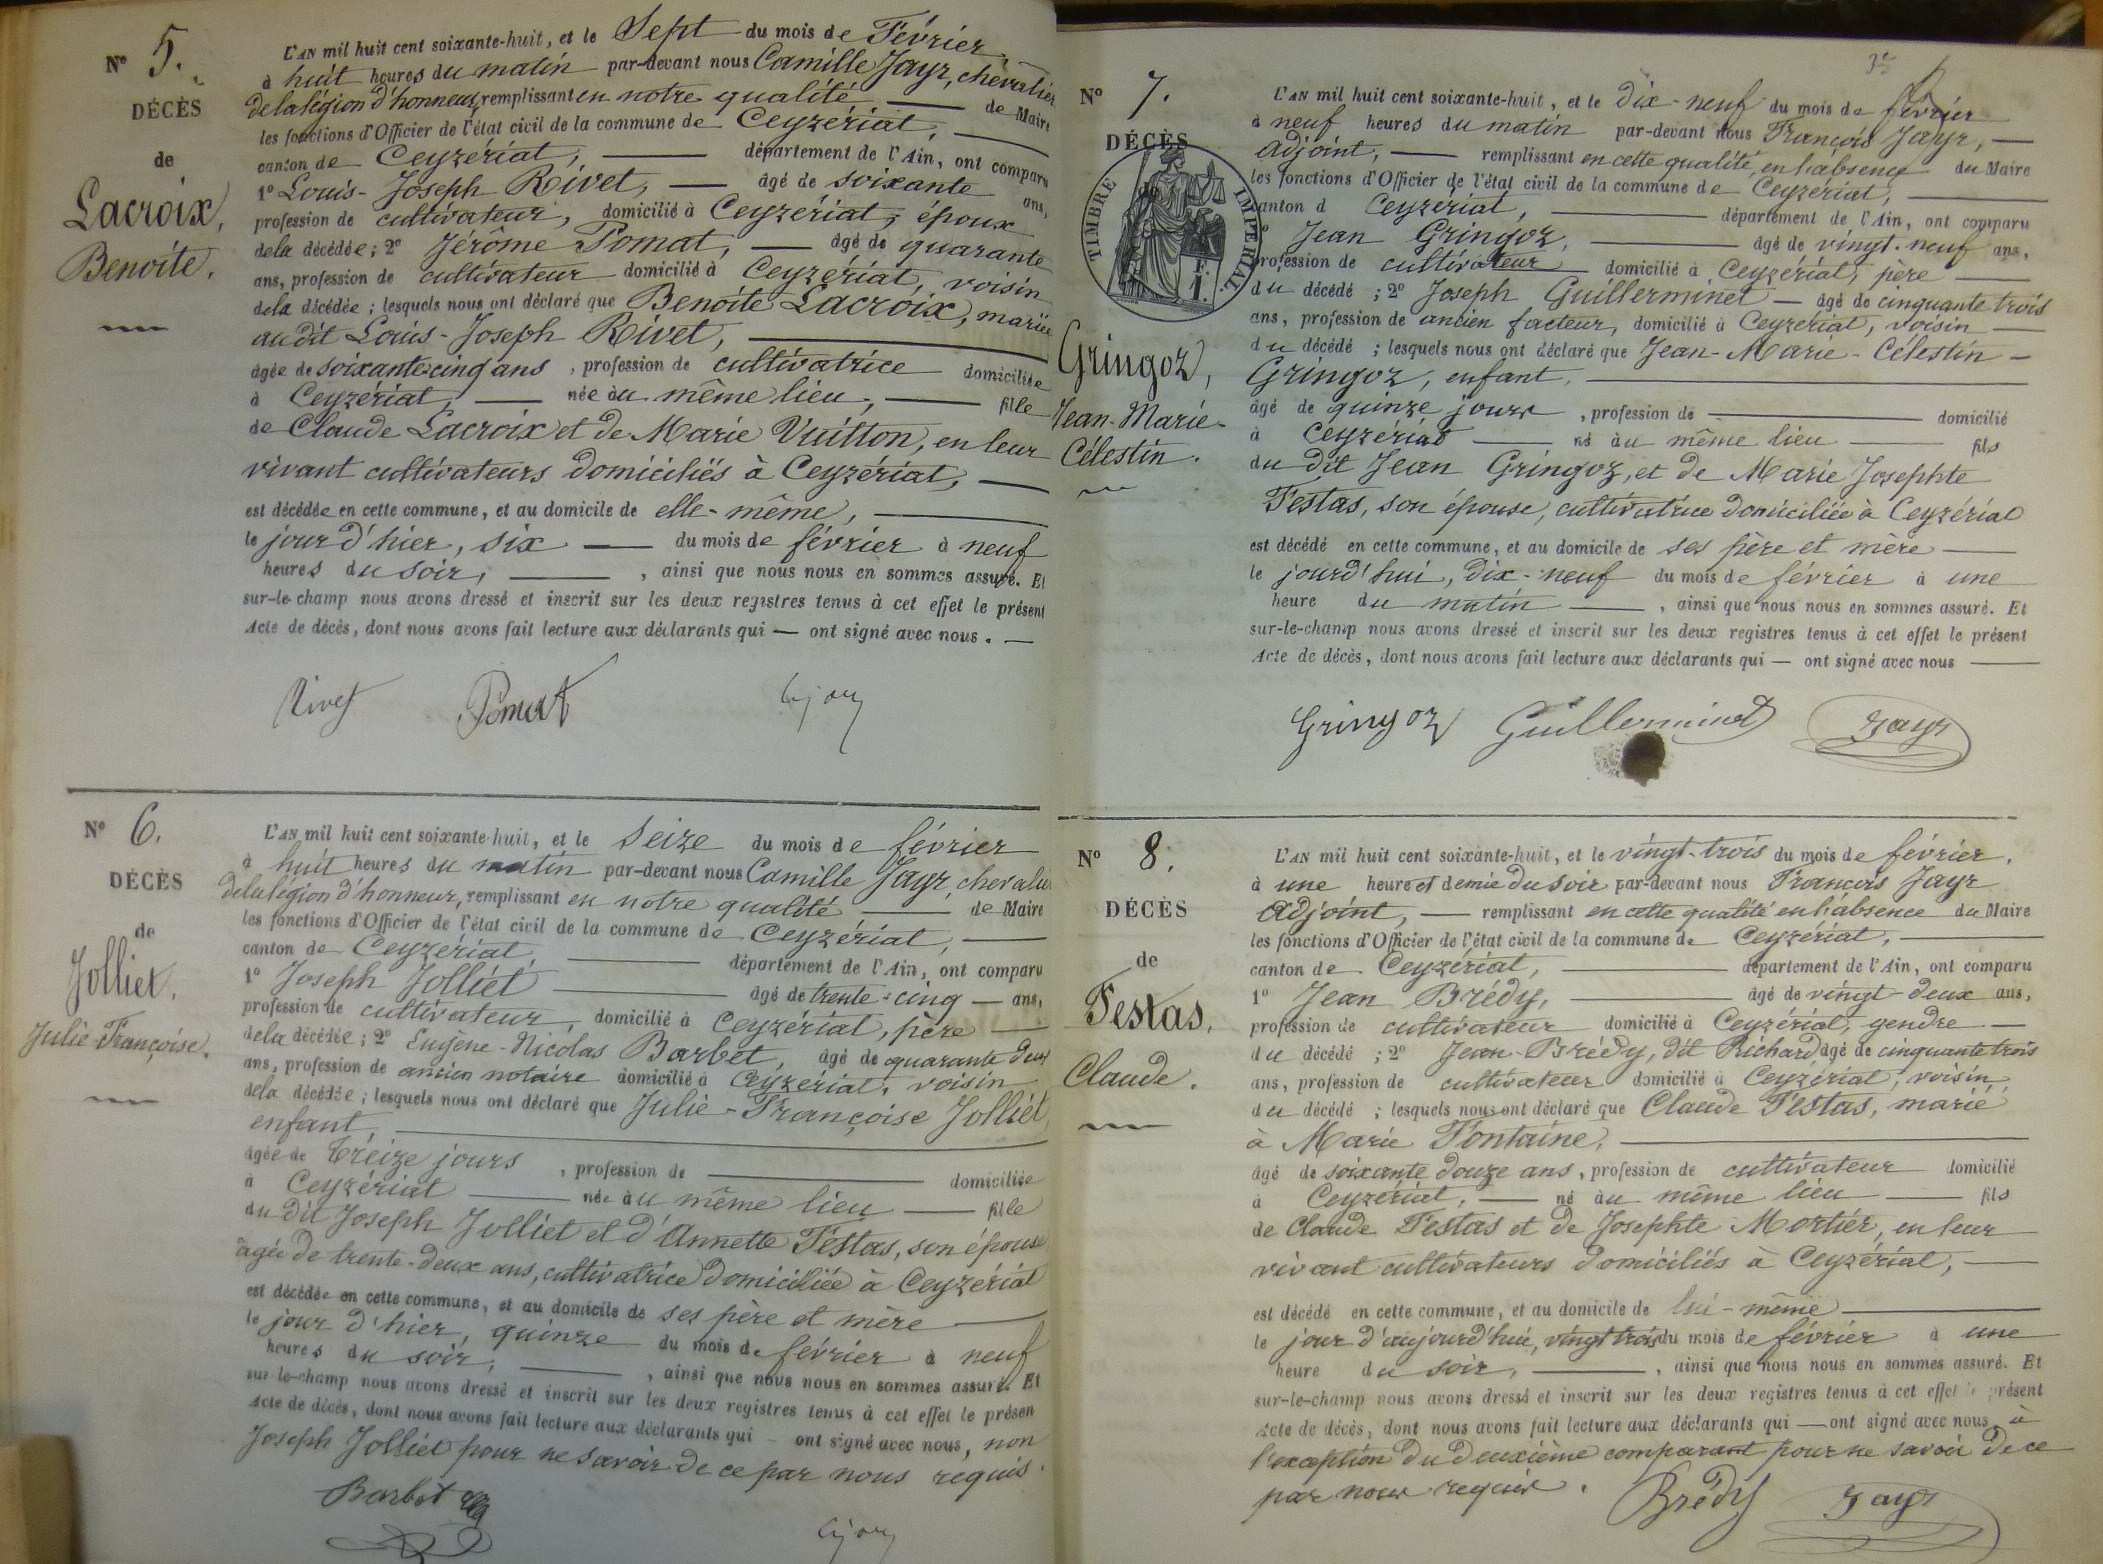 N° 5.
DÉCÈS
de
Lacroix,
Benoite.
L'AN mil huit cent soixante-huit, et le Sept du mois de Février,
à huit heures du matin par-devant nous Camille Jayr, chevalier
de la légion d'honneur, remplissant en notre qualité de Maire
les fonctions d'Officier de l'état civil de la commune de Ceyzériat,
canton de Ceyzériat, département de l'Ain, ont comparu
1° Louis-Joseph Rivet, âgé de soixante ans,
profession de cultivateur, domicilié à Ceyzériat, époux
de la décédée; 2° Jérôme Pomat, âgé de quarante
ans, profession de cultivateur domicilié à Ceyzériat, voisin
de la décédée; lesquels nous ont déclaré que Benoite Lacroix, mariée
audit Louis-Joseph Rivet,
âgée de soixante cinq ans, profession de cultivatrice domiciliée
à Ceyzériat, née au même lieu, fille
de Claude Lacroix et de Marie Vuitton, en leur
vivant cultivateurs domiciliés à Ceyzériat,
est décédée en cette commune, et au domicile de elle-même,
le jour d'hier, six du mois de février à neuf
heures du soir, , ainsi que nous nous en sommes assuré. Et
sur-le-champ nous avons dressé et inscrit sur les deux registres tenus à cet effet le présent
Acte de décès, dont nous avons fait lecture aux déclarants qui — ont signé avec nous. —
Rivet Pomat
N° 6.
DÉCÈS
de
Jolliet.
Julie Françoise.
L'AN mil huit cent soixante-huit, et le Seize du mois de février
à huit heures du matin par-devant nous Camille Jayr, chevalier
de la légion d'honneur, remplissant en notre qualité de Maire
les fonctions d'Officier de l'état civil de la commune de Ceyzériat,
canton de Ceyzériat, département de l'Ain, ont comparu
1° Joseph Jolliet âgé de trente-cinq — ans,
profession de cultivateur, domicilié à Ceyzériat, père
de la décédée; 2° Eugène-Nicolas Barbet, âgé de quarante deux
ans, profession de ancien notaire domicilié à Ceyzériat, voisin
de la décédée; lesquels nous ont déclaré que Julie-Françoise Jolliet,
enfant,
âgée de treize jours, profession de domiciliée
à Ceyzériat née au même lieu fille
du dit Joseph Jolliet et d'Annette Festas, son épouse
âgée de trente-deux ans, cultivatrice domiciliée à Ceyzériat
est décédée en cette commune, et au domicile de ses père et mère
le jour d'hier, quinze du mois de février à neuf
heures du soir, , ainsi que nous nous en sommes assuré. Et
sur-le-champ nous avons dressé et inscrit sur les deux registres tenus à cet effet le présen
Acte de décès, dont nous avons fait lecture aux déclarants qui — ont signé avec nous, non
Joseph Jolliet pour ne savoir de ce par nous requis.
Barbet
3e
N° 7.
DÉCÈS
de
TIMBRE IMPÉRIAL
F.
1.
Gringoz,
Jean-Marie-
Célestin.
L'AN mil huit cent soixante-huit, et le dix-neuf du mois de février
à neuf heures du matin par-devant nous François Jayr,
Adjoint, remplissant en cette qualité, en l'absence du Maire
les fonctions d'Officier de l'état civil de la commune de Ceyzériat,
canton d Ceyzériat, département de l'Ain, ont comparu
Jean Gringoz, âgé de vingt-neuf ans,
profession de cultivateur domicilié à Ceyzériat, père
du décédé; 2° Joseph Guillerminet — âgé de cinquante trois
ans, profession de ancien facteur, domicilié à Ceyzériat, voisin
du décédé; lesquels nous ont déclaré que Jean-Marie-Célestin —
Gringoz, enfant,
âgé de quinze jours, profession de domicilié
à Ceyzériat né au même lieu fils
du dit Jean Gringoz, et de Marie Josephte
Festas, son épouse, cultivatrice domiciliée à Ceyzériat
est décédé en cette commune, et au domicile de ses père et mère
le jourd'hui, dix-neuf du mois de février à une
heure du matin , ainsi que nous nous en sommes assuré. Et
sur-le-champ nous avons dressé et inscrit sur les deux registres tenus à cet effet le présent
Acte de décès, dont nous avons fait lecture aux déclarants qui — ont signé avec nous
Gringoz Guillerminet Jayr
N° 8.
DÉCÈS
de
Festas,
Claude.
L'AN mil huit cent soixante-huit, et le vingt-trois du mois de février,
à une heure et demie du soir par-devant nous François Jayr
Adjoint, remplissant en cette qualité en l'absence du Maire
les fonctions d'Officier de l'état civil de la commune de Ceyzériat,
canton de Ceyzériat, département de l'Ain, ont comparu
1° Jean Brédy, âgé de vingt-deux ans,
profession de cultivateur domicilié à Ceyzériat, gendre
du décédé; 2° Jean Brédy, dit Richard âgé de cinquante trois
ans, profession de cultivateur domicilié à Ceyzériat, voisin,
du décédé; lesquels nous ont déclaré que Claude Festas, marié
à Marie Fontaine,
âgé de soixante douze ans, profession de cultivateur domicilié
à Ceyzériat, né au même lieu fils
de Claude Festas et de Josephte Mortier, en leur
vivant cultivateurs domiciliés à Ceyzériat,
est décédé en cette commune, et au domicile de lui-même
le jour d'aujourd'hui, vingt trois du mois de février à une
heure du soir, , ainsi que nous nous en sommes assuré. Et
sur-le-champ nous avons dressé et inscrit sur les deux registres tenus à cet effet le présent
Acte de décès, dont nous avons fait lecture aux déclarants qui — ont signé avec nous, à
l'exception du deuxième comparant pour ne savoir de ce
par nous requis.
Brédy Jayr